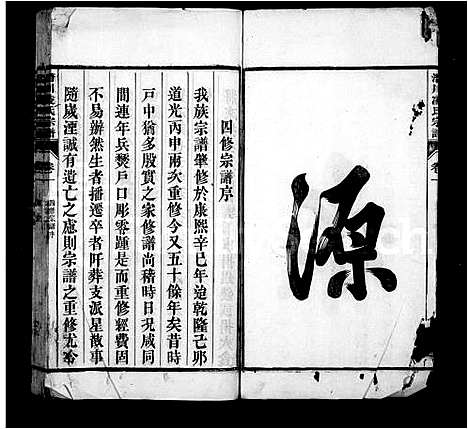 源
四修宗譜序
我族宗譜肇修於康熙辛巳年迨乾隆己卯
道光丙申兩次重修今又五十餘年矣昔時
戶中猶多殷實之家修譜尚稽時日況咸同
間連年兵燹戶口彫零踵是而重修經費固
不易辦然生者播遷卒者阡葬支派星散事
隨歲湮誠有遺亡之慮則宗譜之重修尤亟